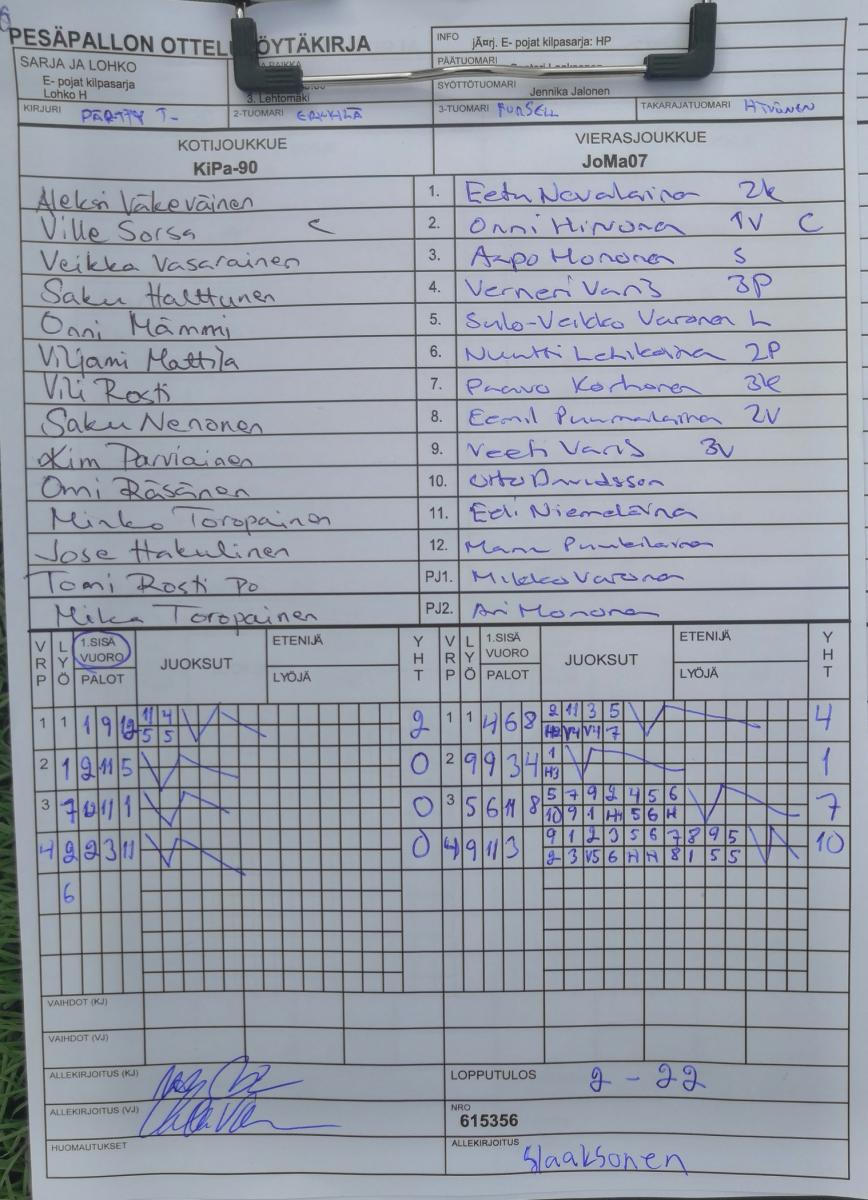 PESÄPALLON OTTELU
ÖYTÄKIRJA
INFO
jÄ¤rj. E- pojat kilpasarja: HP
SARJA JA LOHKO
E- pojat kilpasarja
Lohko H
3. Lehtomäki
PÄÄTUOMARI
SYÖTTÖTUOMARI
Jennika Jalonen
KIRJURI
PÄRTTY T-
2-TUOMARI
3-TUOMARI
PURSELL
TAKARAJATUOMARI
HIVONEN
KOTIJOUKKUE
KiPa-90
VIERASJOUKKUE
JoMa07
Aleksi Väkeväinen 1. Eetu Nevalainen 2k
Ville Sorsa C 2. Onni Hirvonen 1V C
Veikka Vasarainen 3. Aapo Mononen S
Saku Halttunen 4. Verneri Varis 3P
Onni Mämmi 5. Sulo-Veikko Varonen L
Viljami Mattila 6. Nuutti Lehikoinen 2P
Vili Rosti 7. Paavo Korhonen 3k
Saku Nenonen 8. Eemil Puumalainen 2V
Kim Parviainen 9. Veeti Varis 3V
Onni Räsänen 10. Otto Davidsson
Minko Toropainen 11. Edi Niemeläinen
Jose Hakulinen 12.
Tomi Rosti PO PJ1. Mikko Varonen
Mika Toropainen PJ2. Ari Mononen
VRP LYÖ 1.SISÄ VUORO PALOT JUOKSUT ETENIJÄ LYÖJÄ YHT VRP LYÖ 1.SISÄ VUORO PALOT JUOKSUT ETENIJÄ LYÖJÄ YHT
1 1 1 9 12 11 4 2 1 1 4 6 8 2 11 3 5 4
5 5 H2 V4 V4 7
2 1 2 11 5 0 2 9 9 3 4 1 1
H3
3 7 0 3 5 6 11 8 5 7 9 2 4 5 6 7
10 9 1 H4 5 6 H
4 2 2 3 11 0 4 9 11 3 9 1 2 3 5 6 7 8 9 5 10
2 3 V5 6 H H 8 1 5 5
6
VAIHDOT (KJ)
VAIHDOT (VJ)
ALLEKIRJOITUS (KJ)
LOPPUTULOS
2 - 22
ALLEKIRJOITUS (VJ)
NRO
615356
HUOMAUTUKSET
ALLEKIRJOITUS
SLaaksonen